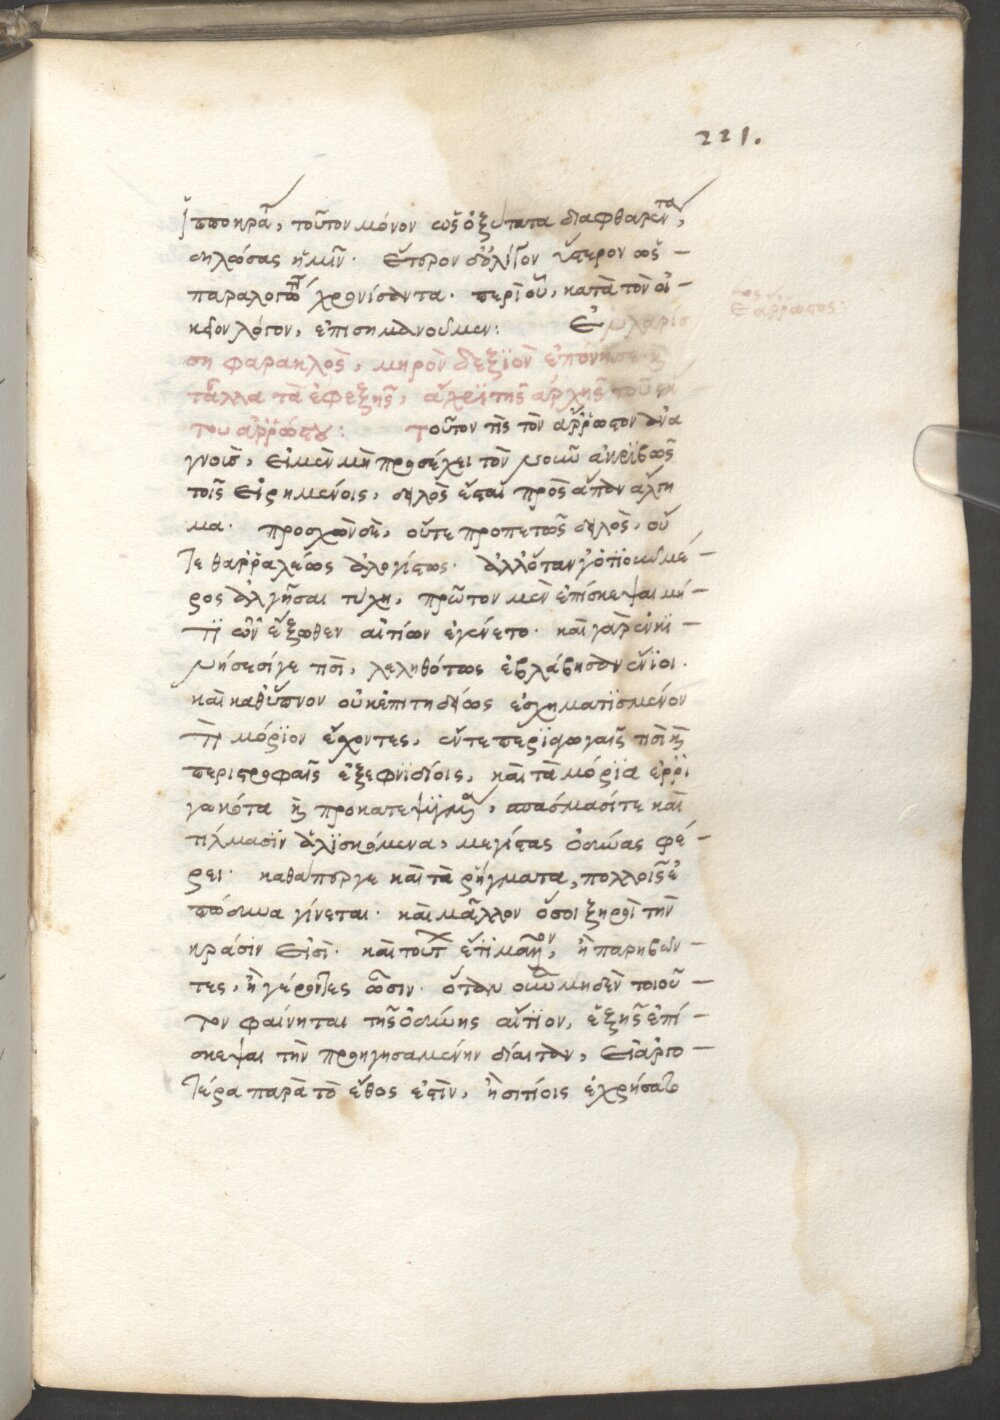 221.
ἱπποκρά, τοῦτον μόνον ὡς ὀξύτατα διαφθαρέντα,
δηλώσας ἡμῖν. ἕτερον δ' ὀλίγον ὕστερον ὡς
παραλογώτατα χρονίσαντα. περὶ οὗ, κατὰ τὸν οἰ-
κεῖον λόγον, ἐπισημανοῦμεν: Ἐν λαρίσ
ση φαλακρὸς, μηρὸν δεξϊὸν ἐπόνησε
τἆλλα τὰ ἐφεξῆς, ἄχρι τῆς ἀρχῆς τοῦ
του ἀρρώστου: Τοῦτον τίς τὸν ἄρρωστον ἀνα
γνοὺς, εἰ μὲν μὴ προσέχει τὸν νοῦν ἀκριβῶς
τοῖς εἰρημένοις, δειλὸς ἔσται πρὸς ἅπαν ἄλγη
μα. προσχὼν δὲ, οὔτε προπετῶς δειλὸς, οὔ
τε θαρραλέως ἀλογίστως. ἀλλ' ὅταν γ' ὁτιοῦν μέ-
ρος ἀλγῆσαι τύχη, πρῶτον μὲν ἐπίσκεψαι μή-
τι τῶν ἔξωθεν αἰτίων ἐγένετο. καὶ γὰρ ἐν κϊ-
νήσεσί γε τισὶ, λεληθότως ἐβλάβησαν ἔνϊοι.
καὶ καθ' ὕπνον οὐκ ἐπιτηδείως ἐσχηματϊσμένον
τι μόρϊον ἔχοντες, ἔν τε περϊαγωγαῖς τισὶ καὶ
περιστροφαῖς ἐξεφνϊδίοις, καὶ τὰ μόρϊα ἐρρϊ
γωκότα ἢ προκατεψϋγμένα, σπάσμασί τε καὶ
τίλμασϊν ἁλϊσκόμενα, μεγίστας ὀδύνας φέ-
ρει. καθάπερ γε καὶ τὰ ῥήγματα, πολλοῖς ἐ
πώδυνα γίνεται. καὶ μᾶλλον ὅσοι ξηροὶ τὴν
κρᾶσϊν εἰσὶ. καὶ τούτων ἔτϊ μᾶλλον, ἢν παρηβῶν-
τες, ἢ γέροντες ὦσιν. ὅταν οὖν μηδὲν τοιοῦ-
τον φαίνηται τῆς ὀδύνης αἴτϊον, ἑξῆς ἐπί-
σκεψαι τὴν προηγησαμένην δίαιταν, εἰ ἀργο-
τέρα παρὰ τὸ ἔθος ἐστὶν, ἢ σιτίοις ἐχρήσατο
ἄρρωστος: